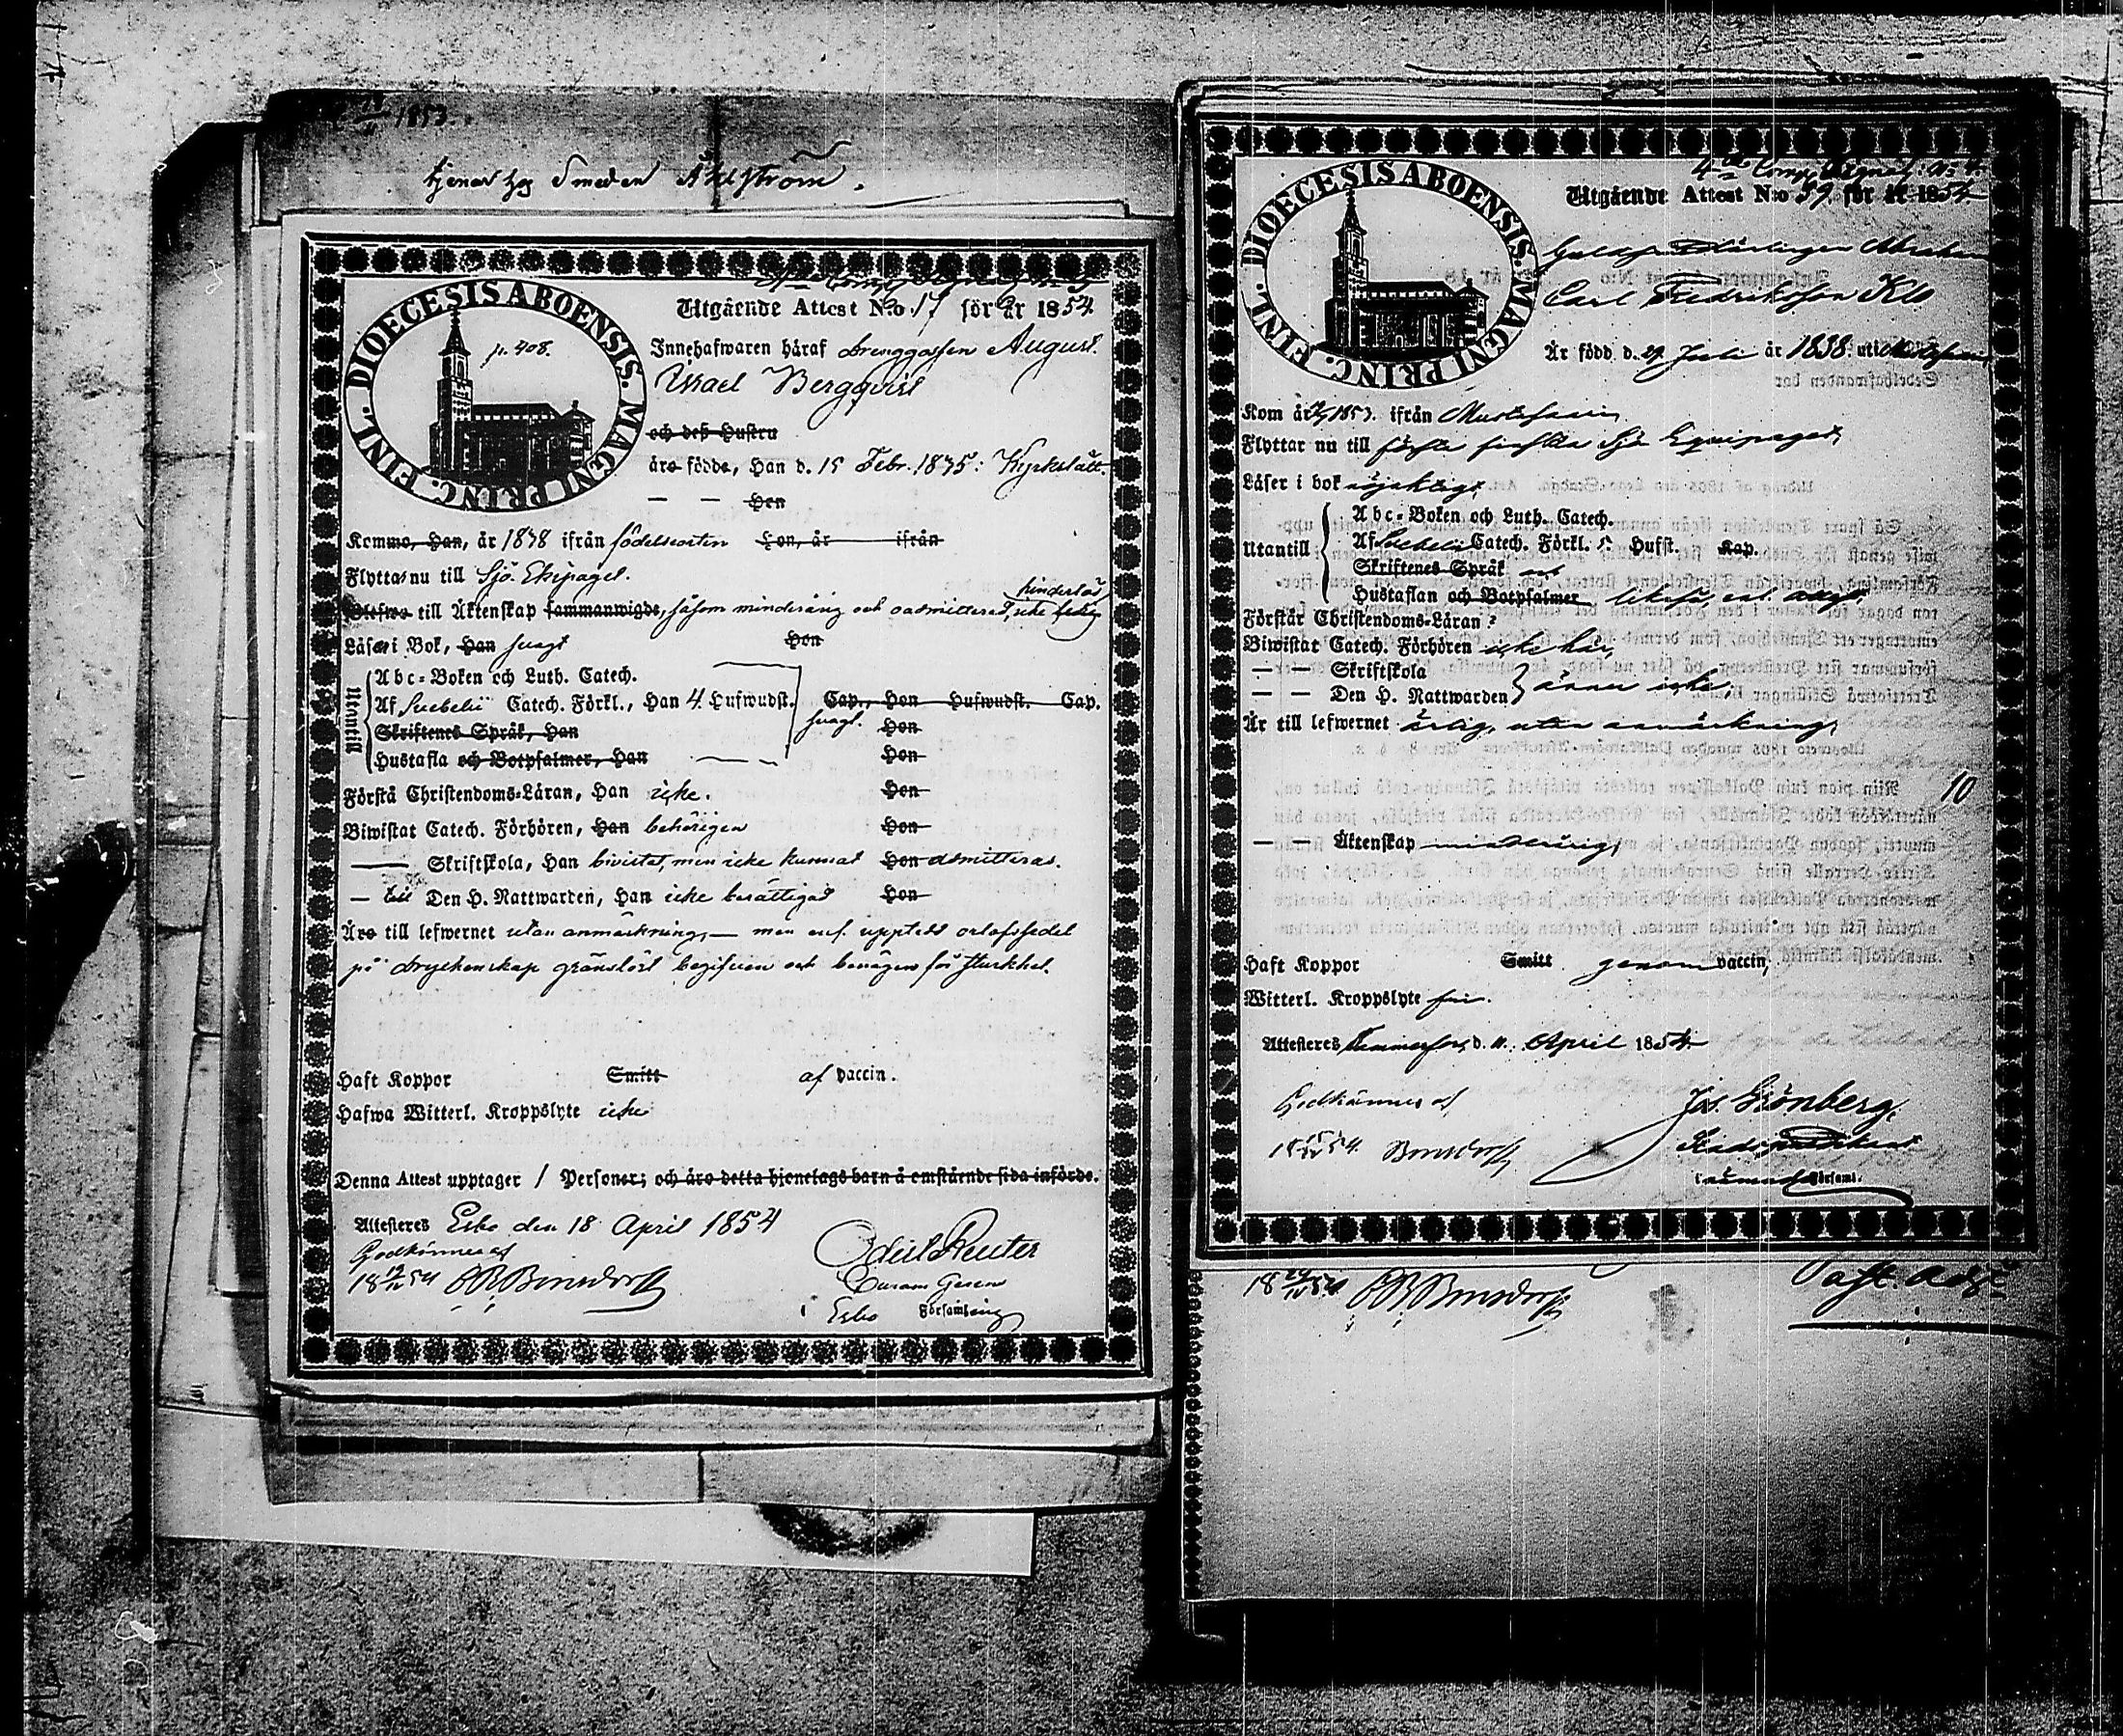 1853.
tjenar hos Smeden Åhlström.
DIOECESIS ABOENSIS. MAGNI PRINC. FINL.
p. 408.
Utgående Attest N:o 17 för år 1854.
Innehafwaren häraf drenggossen August
Israel Bergqvist
och deß Hustru
äro födde, Han d. 15 Febr. 1835: Kyrkslätt.
— — Hon
Kommo, Han, år 1838 ifrån födelseorten Hon, år ifrån
Flyttas nu till Sjö-Ekipaget.
till Äktenskap sammanwigde, såsom minderårig och oadmitterad, icke ledig hinderlös
Läser i Bok, Han svagt Hon
Utantill
Abc-Boken och Luth. Catech.
Af Svebelii Catech. Förkl., Han 4 Hufwudst. Cap., Hon Hufwudst. Cap.
Skriftenes Språk, Han svagt. Hon
Hustafla och Botpsalmer, Han Hon
Förstå Christendoms-Läran, Han icke. Hon
Biwistat Catech. Förhören, Han behörigen Hon
— Skriftskola, Han bivistat, men icke kunnat Hon admitteras.
— till Den H. Nattwarden, Han icke berättigad Hon
Äro till lefwernet utan anmärkning, — men enl. uppteds orlofssedel
på dryckenskap gränslöst begifven och benägen för sturskhet.
Haft Koppor Smitt af vaccin.
Hafwa Witterl. Kroppslyte icke
Denna Attest upptager 1 Personer; och äro detta hjonelags barn å omstående sida införde.
Attesteres Esbo den 18 April 1854
Godkännes af
18 19/IV 54 Bonsdorff
Reuter
i Esbo Församling
DIOECESIS ABOENSIS. MAGNI PRINC. FINL.
Utgående Attest N:o 39 för år 1854
Carl Fredriksson Klo
Är född d. 29 Juli år 1838 uti
Kom år 1853. ifrån
Flyttar nu till första finska Sjö Equipaget,
Läser i bok nöjaktigt,
Utantill
Abc-Boken och Luth. Catech.
Af Svebelii Catech. Förkl. 5. Hufst. Kap.
Skriftenes Språk
Hustaflan och Botpsalmer
Förstår Christendoms-Läran
Biwistat Catech. Förhören icke här,
— — Skriftskola
— — Den H. Nattwarden } ännu icke,
Är till lefwernet ärlig, utan anmärkning,
10
— — Äktenskap minderårig,
Haft Koppor Smitt genom vaccin,
Witterl. Kroppslyte fri.
Attesteres Tammerfors, d. 11. April 1854
Godkännes af
18 15/IV 54. Bonsdorff
Jos. Grönberg,
i Församl.
18 54 Bonsdorff
Past. Adj.